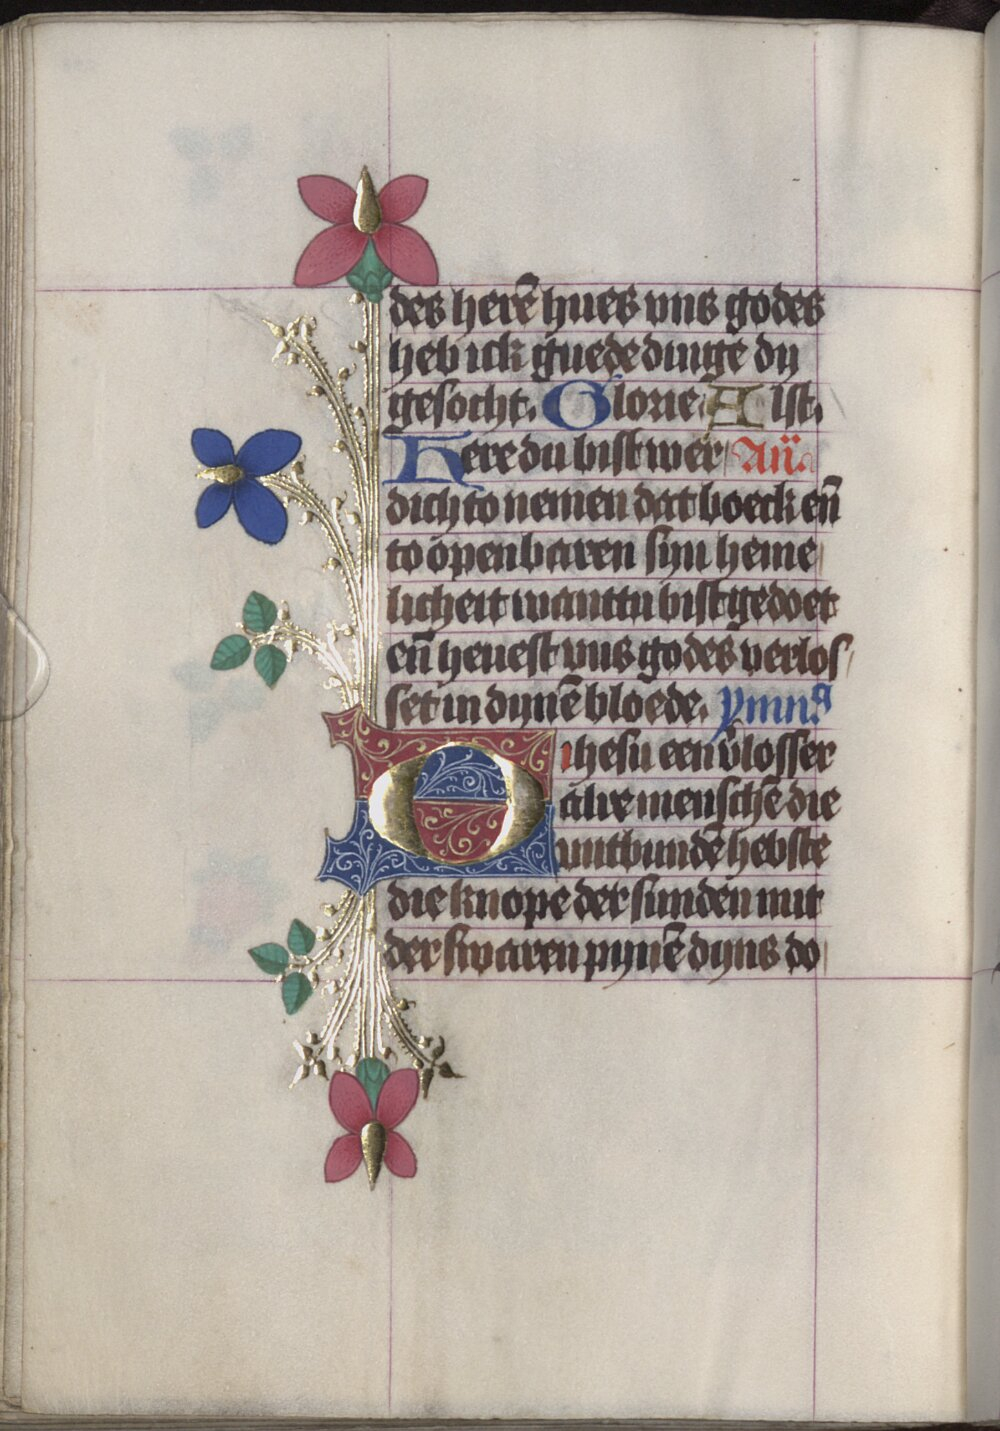 des herē hues vns godes
heb ick guede dinge dy
gesocht. Glorie. Alst.
Here du bist wer An̄.
dich to nemen dat boeck en̄
to openbaren syn heme
licheit want tu bist gedoet
en̄ heuest vns godes verlos
set in dynē bloede. ymn⁹
O ihesu een v̄losser
alre menschē die
untbundē hebste
die knope der sunden mit
der swaren pynē dyns do